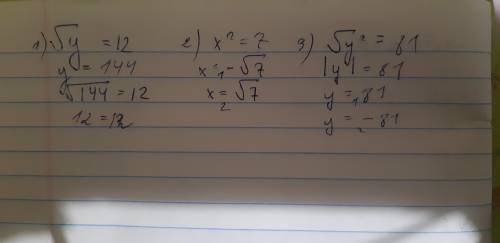 1) √y = 12
y = 144
√144 = 12
12 = 12
2) x² = 7
x₁ = -√7
x₂ = √7
3) √y² = 81
|y| = 81
y₁ = 81
y₂ = -81